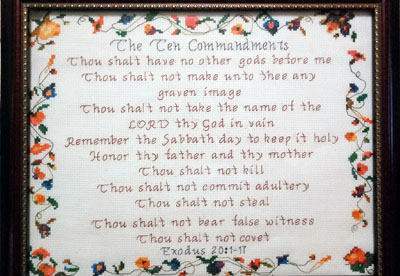 The Ten Commandments
Thou shalt have no other gods before me
Thou shalt not make unto thee any
graven image
Thou shalt not take the name of the
LORD thy God in vain
Remember the Sabbath day to keep it holy
Honor thy father and thy mother
Thou shalt not kill
Thou shalt not commit adultery
Thou shalt not steal
Thou shalt not bear false witness
Thou shalt not covet
Exodus 20:1-17